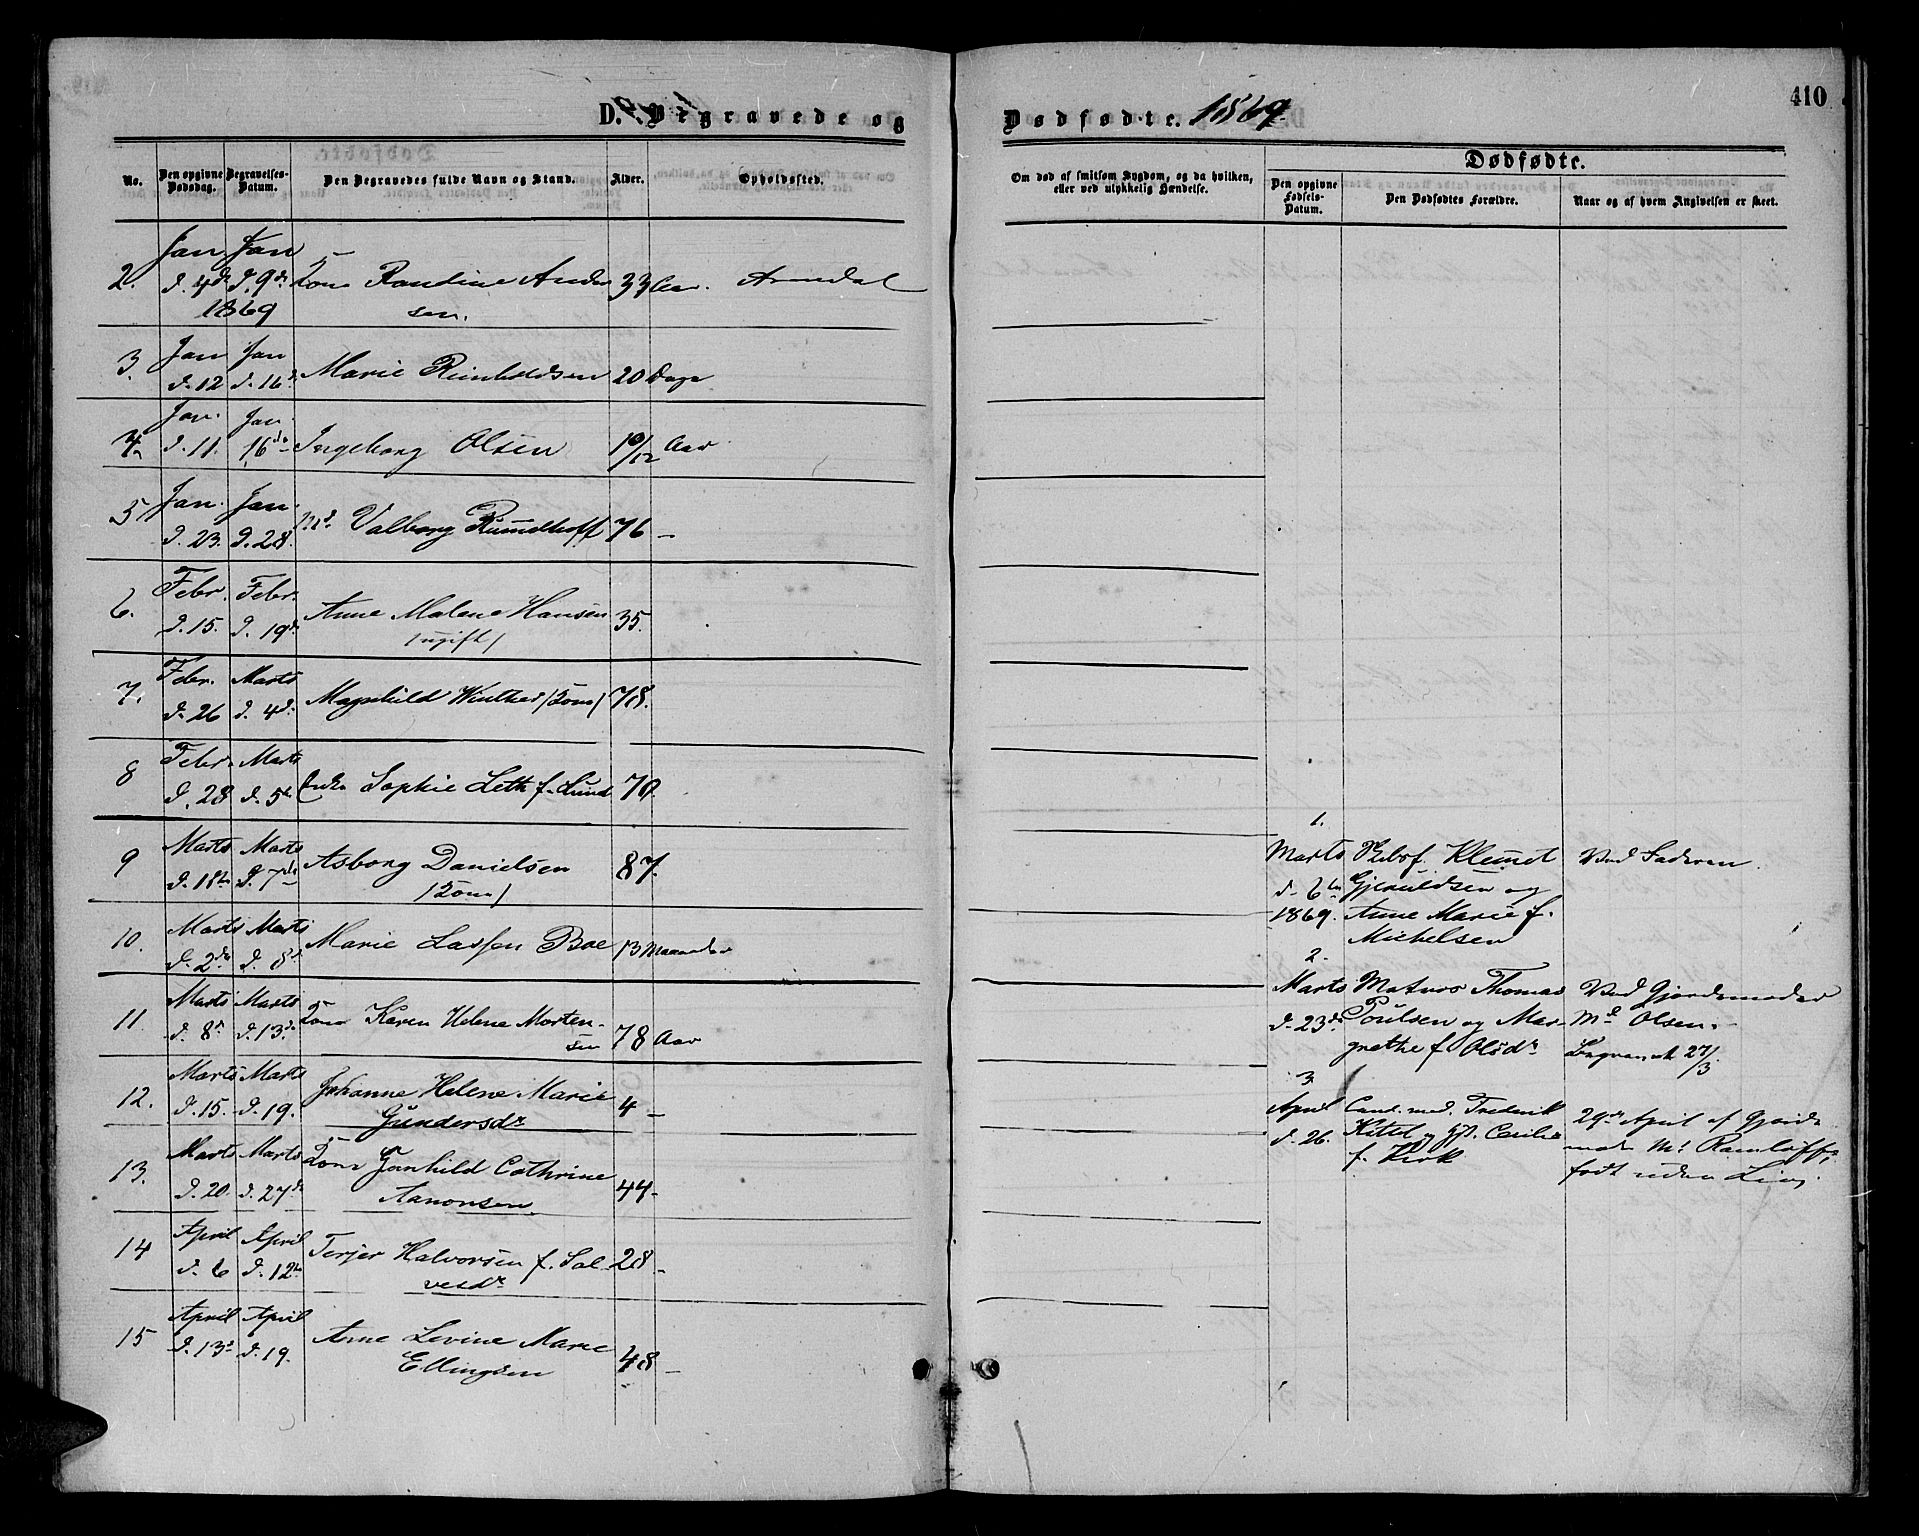 410
D. Begravede og Dødfødte. 1869.
No.
Den opgivne Dødsdag.
Begravelses-Datum.
Den Begravedes fulde Navn og Stand.
Alder.
Opholdssted.
Om død af smitsom Sygdom, og da hvilken,
eller ved ulykkelig Hændelse.
Dødfødte.
Den opgivne Fødsels-Datum.
Den Dødfødtes Forældre.
Naar og af hvem Angivelsen er skeet.
Jan Jan
2. d. 4de d. 9de Kone Randine Ander 33 Aar. Arendal
1869 sen.
Jan Jan
3. d. 12 d. 16de Marie Reinholdsen 20 Dage
Jan. Jan.
4. d. 11. 16de Ingeborg Olsen 10/12 Aar
Jan. Jan.
5 d. 23. d. 28. Md. Valborg Rümelhoff 76 –
Febr. Febr.
6. d. 15. d. 19de Anne Malene Hansen 35.
/ugift/
Febr. Marts
7. d. 26 d. 4de Magnhild Winther /Kone/ 78.
Febr. Marts
8 d. 28 d. 5te Enke Sophie Leth f. Lund 70.
Marts Marts
9 d. 1ste d. 7de Asborg Danielsen 87.
/Kone/
Marts Marts
10. d. 2den d. 8de Marie Lassen Boe 13 Maaneder
Marts Marts
11. d. 8de d. 13de Kone Karen Helene Morten-
sen 78 Aar
Marts Marts
12. d. 15. d. 19. Johanne Helene Marie 4 –
Gundersdr
Marts Marts
13. d. 20. d. 27de Kone Gunhild Cathrine
Aanonsen 44 –
April April
14 d. 6 d. 12te Terjer Halvorsen f. Sal- 28 –
vesdr
April April
15 d. 13de d. 19. Anne Levine Marie
Ellingsen 48 –
1.
Marts d. 6te 1869.
Klemet
Gjeruldsen og
Anne Marie f.
Michelsen
Ved Faderen.
2.
Marts d. 23de
Matros Thomas
Poulsen og Mar-
grethe f. Olsdr
Ved Gjordemoder
Md Olsen.
begravet 27/3
3.
April d. 26.
Cand. med. Frederik
Kittel og Cecilie
f. Kirk
29de April af Gjorde
moder Md Ramløff,
født uden Liv.